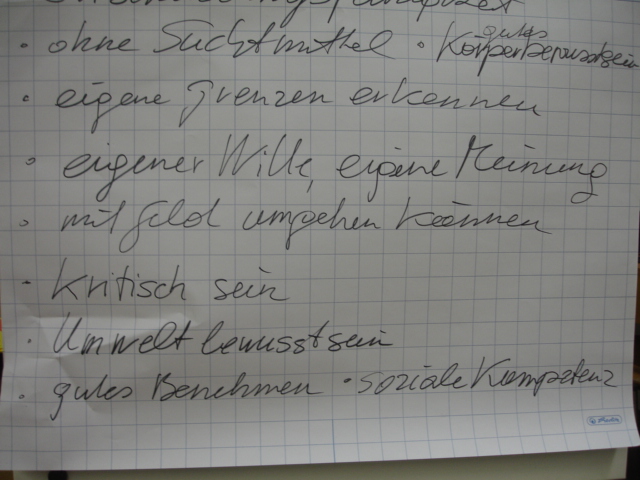 • ohne Suchtmittel • gutes Körperbewusstsein
• eigene Grenzen erkennen
• eigener Wille, eigene Meinung
• mit Geld umgehen können
• Kritisch sein
• Umweltbewusstsein
• gutes Benehmen • soziale Kompetenz